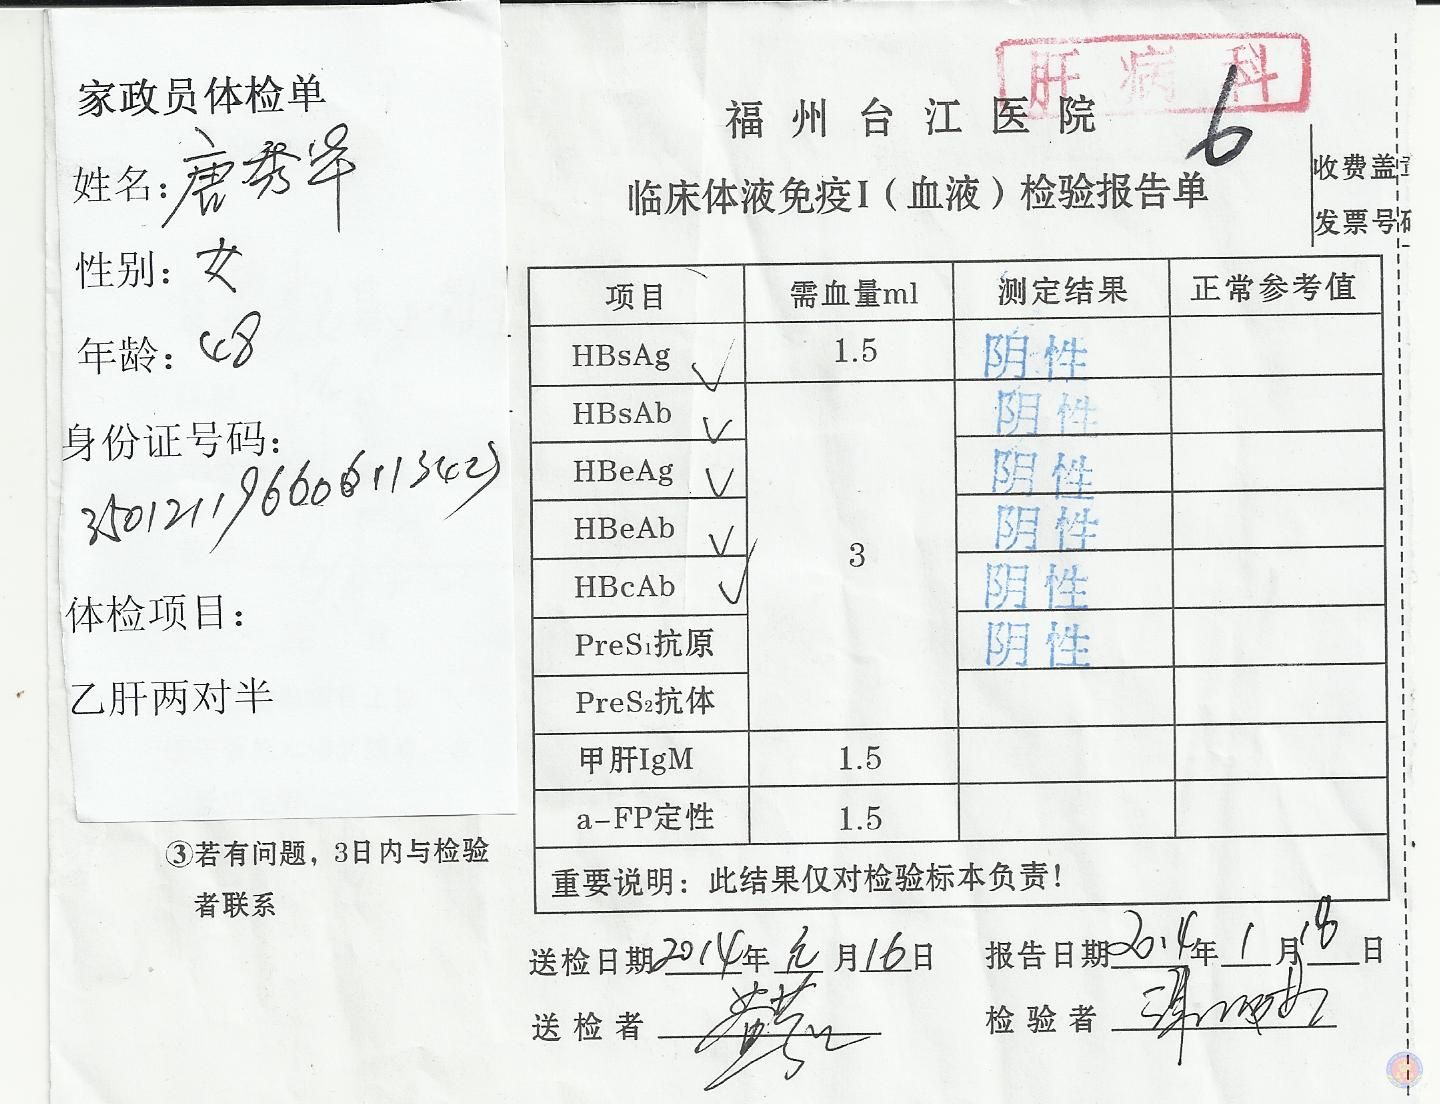 家政员体检单
姓名：唐秀平
性别：女
年龄：48
身份证号码：
体检项目：
乙肝两对半
③若有问题，3日内与检验
者联系
肝病科
福州台江医院
6
临床体液免疫I（血液）检验报告单
收费盖章
发票号码
项目 需血量ml 测定结果 正常参考值
HBsAg ✓ 1.5 阴性
HBsAb ✓ 阴性
HBeAg ✓ 阴性
HBeAb ✓ 3 阴性
HBcAb ✓ 阴性
PreS₁抗原 阴性
PreS₂抗体
甲肝IgM 1.5
a-FP定性 1.5
重要说明：此结果仅对检验标本负责！
送检日期2014年元月16日 报告日期2014年1月18日
送检者 检验者